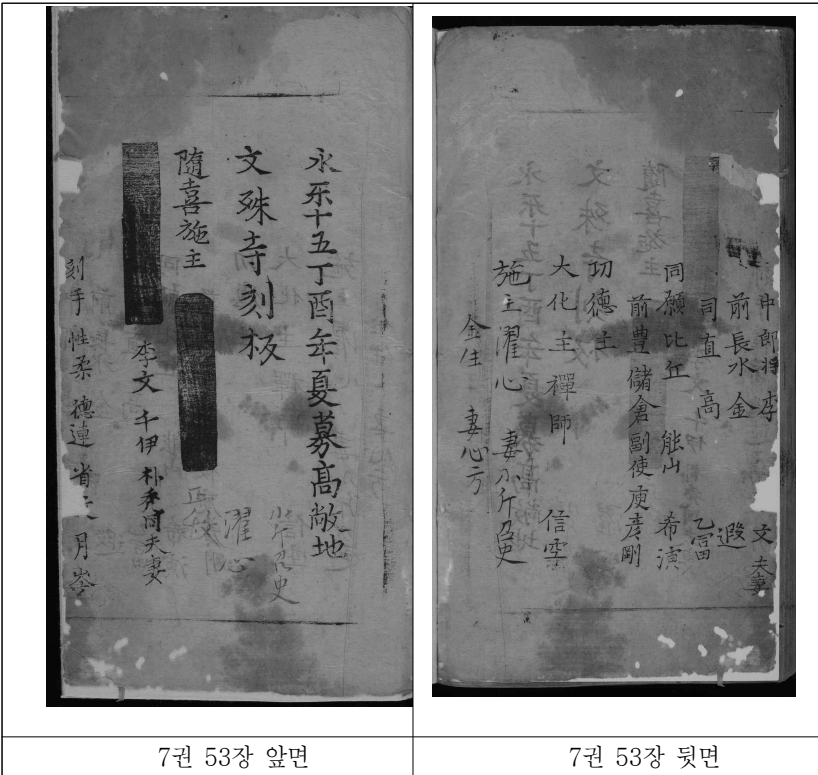 永乐十五丁酉年夏募高敞地
召史
文殊寺刻板
濯心
隨喜施主
李文 千伊 朴 夫妻
刻手 性柔 德連 省 月岑
7권 53장 앞면
中郎將 李 文 夫妻
前長水 金 遐
司直 高 乙富
同願比丘 能山 希演
前豊儲倉副使庾彦剛
功德主
大化主禪師 信雲
施主濯心 妻小斤召史
金生 妻心方
7권 53장 뒷면